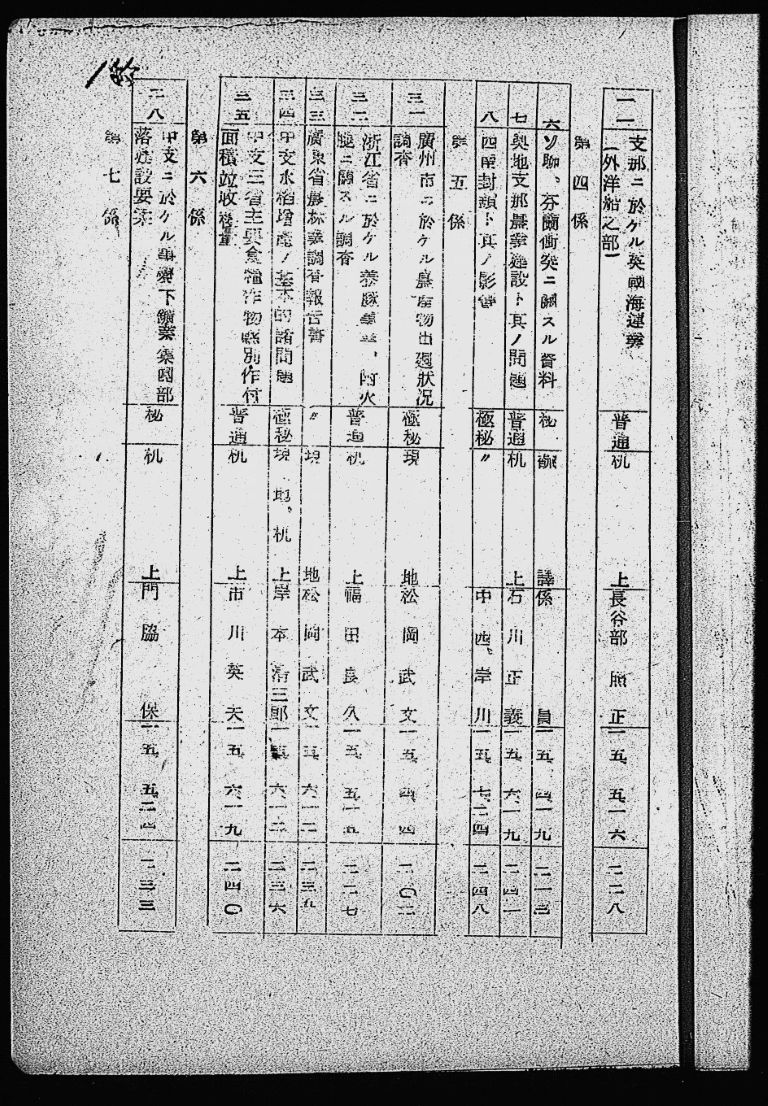 一一 支那ニ於ケル英國海運業(外洋船之部) 普通 机上 長谷部照正 一五、五、一六 二二八
第四係
六 ソ聯、芬蘭衝突ニ關スル資料 秘 飜譯 係員 一五、四、一九 二一三
七 奥地支那農業建設ト其ノ問題 普通 机上 石川正義 一五、六、一九 二四一
八 四國封鎖ト其ノ影響 極秘 〃 中西、岸川 一五、七、二四 二四八
第五係
三一 廣州市ニ於ケル農産物出廻狀況
調査 極秘 現地 松岡武文 一五、四、四 二〇二
三二 浙江省ニ於ケル養豚事業、
腿ニ關スル調査 普通 机上 福田良久 一五、五、一五 二二七
三三 廣東省農林業調査報告書 〃 現地 松岡武文 一五、六、一二 二三五
三四 中支水稻増産ノ基本的諸問題 極秘 現地、机上 岸本清三郎 六、一二 二三六
三五 中支三省主要食糧作物縣別作付
面積並收穫量 普通 机上 市川英夫 一五、六、一九 二四〇
第六係
二八 中支ニ於ケル事變下鑛業集團部
落建設要案 秘 机上 門脇保 一五、五、二四 二三三
第七係